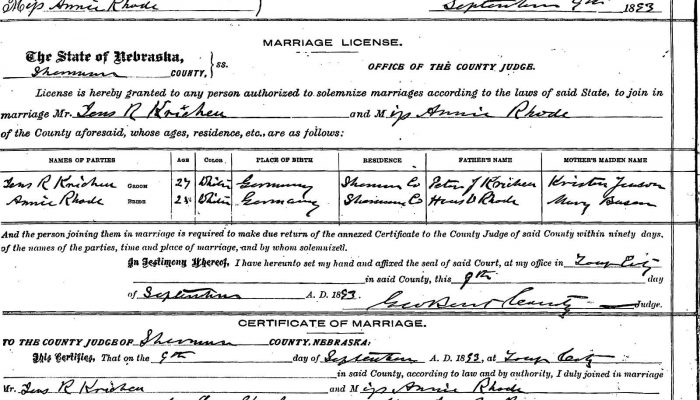 Miss Annie Rhode ) September 9th 1893
MARRIAGE LICENSE.
The State of Nebraska, } ss.
Sherman COUNTY, OFFICE OF THE COUNTY JUDGE.
License is hereby granted to any person authorized to solemnize marriages according to the laws of said State, to join in
marriage Mr. Jens R Krichen and Miss Annie Rhode
of the County aforesaid, whose ages, residence, etc., are as follows:
NAMES OF PARTIES AGE COLOR PLACE OF BIRTH RESIDENCE FATHER'S NAME MOTHER'S MAIDEN NAME
Jens R Krichen GROOM 27 White Germany Sherman Co Peter J Krichen Kristin Jenson
Annie Rhode BRIDE White Germany Sherman Co Rhode Mary
And the person joining them in marriage is required to make due return of the annexed Certificate to the County Judge of said County within ninety days,
of the names of the parties, time and place of marriage, and by whom solemnized.
In Testimony Whereof, I have hereunto set my hand and affixed the seal of said Court, at my office in Loup City
in said County, this 9th day
of September A. D. 1893 County Judge.
CERTIFICATE OF MARRIAGE.
TO THE COUNTY JUDGE OF Sherman COUNTY, NEBRASKA:
This Certifies, That on the 9th day of September A. D. 1893, at Loup City
in said County, according to law and by authority, I duly joined in marriage
Mr. Jens R Krichen and Miss Annie Rhode